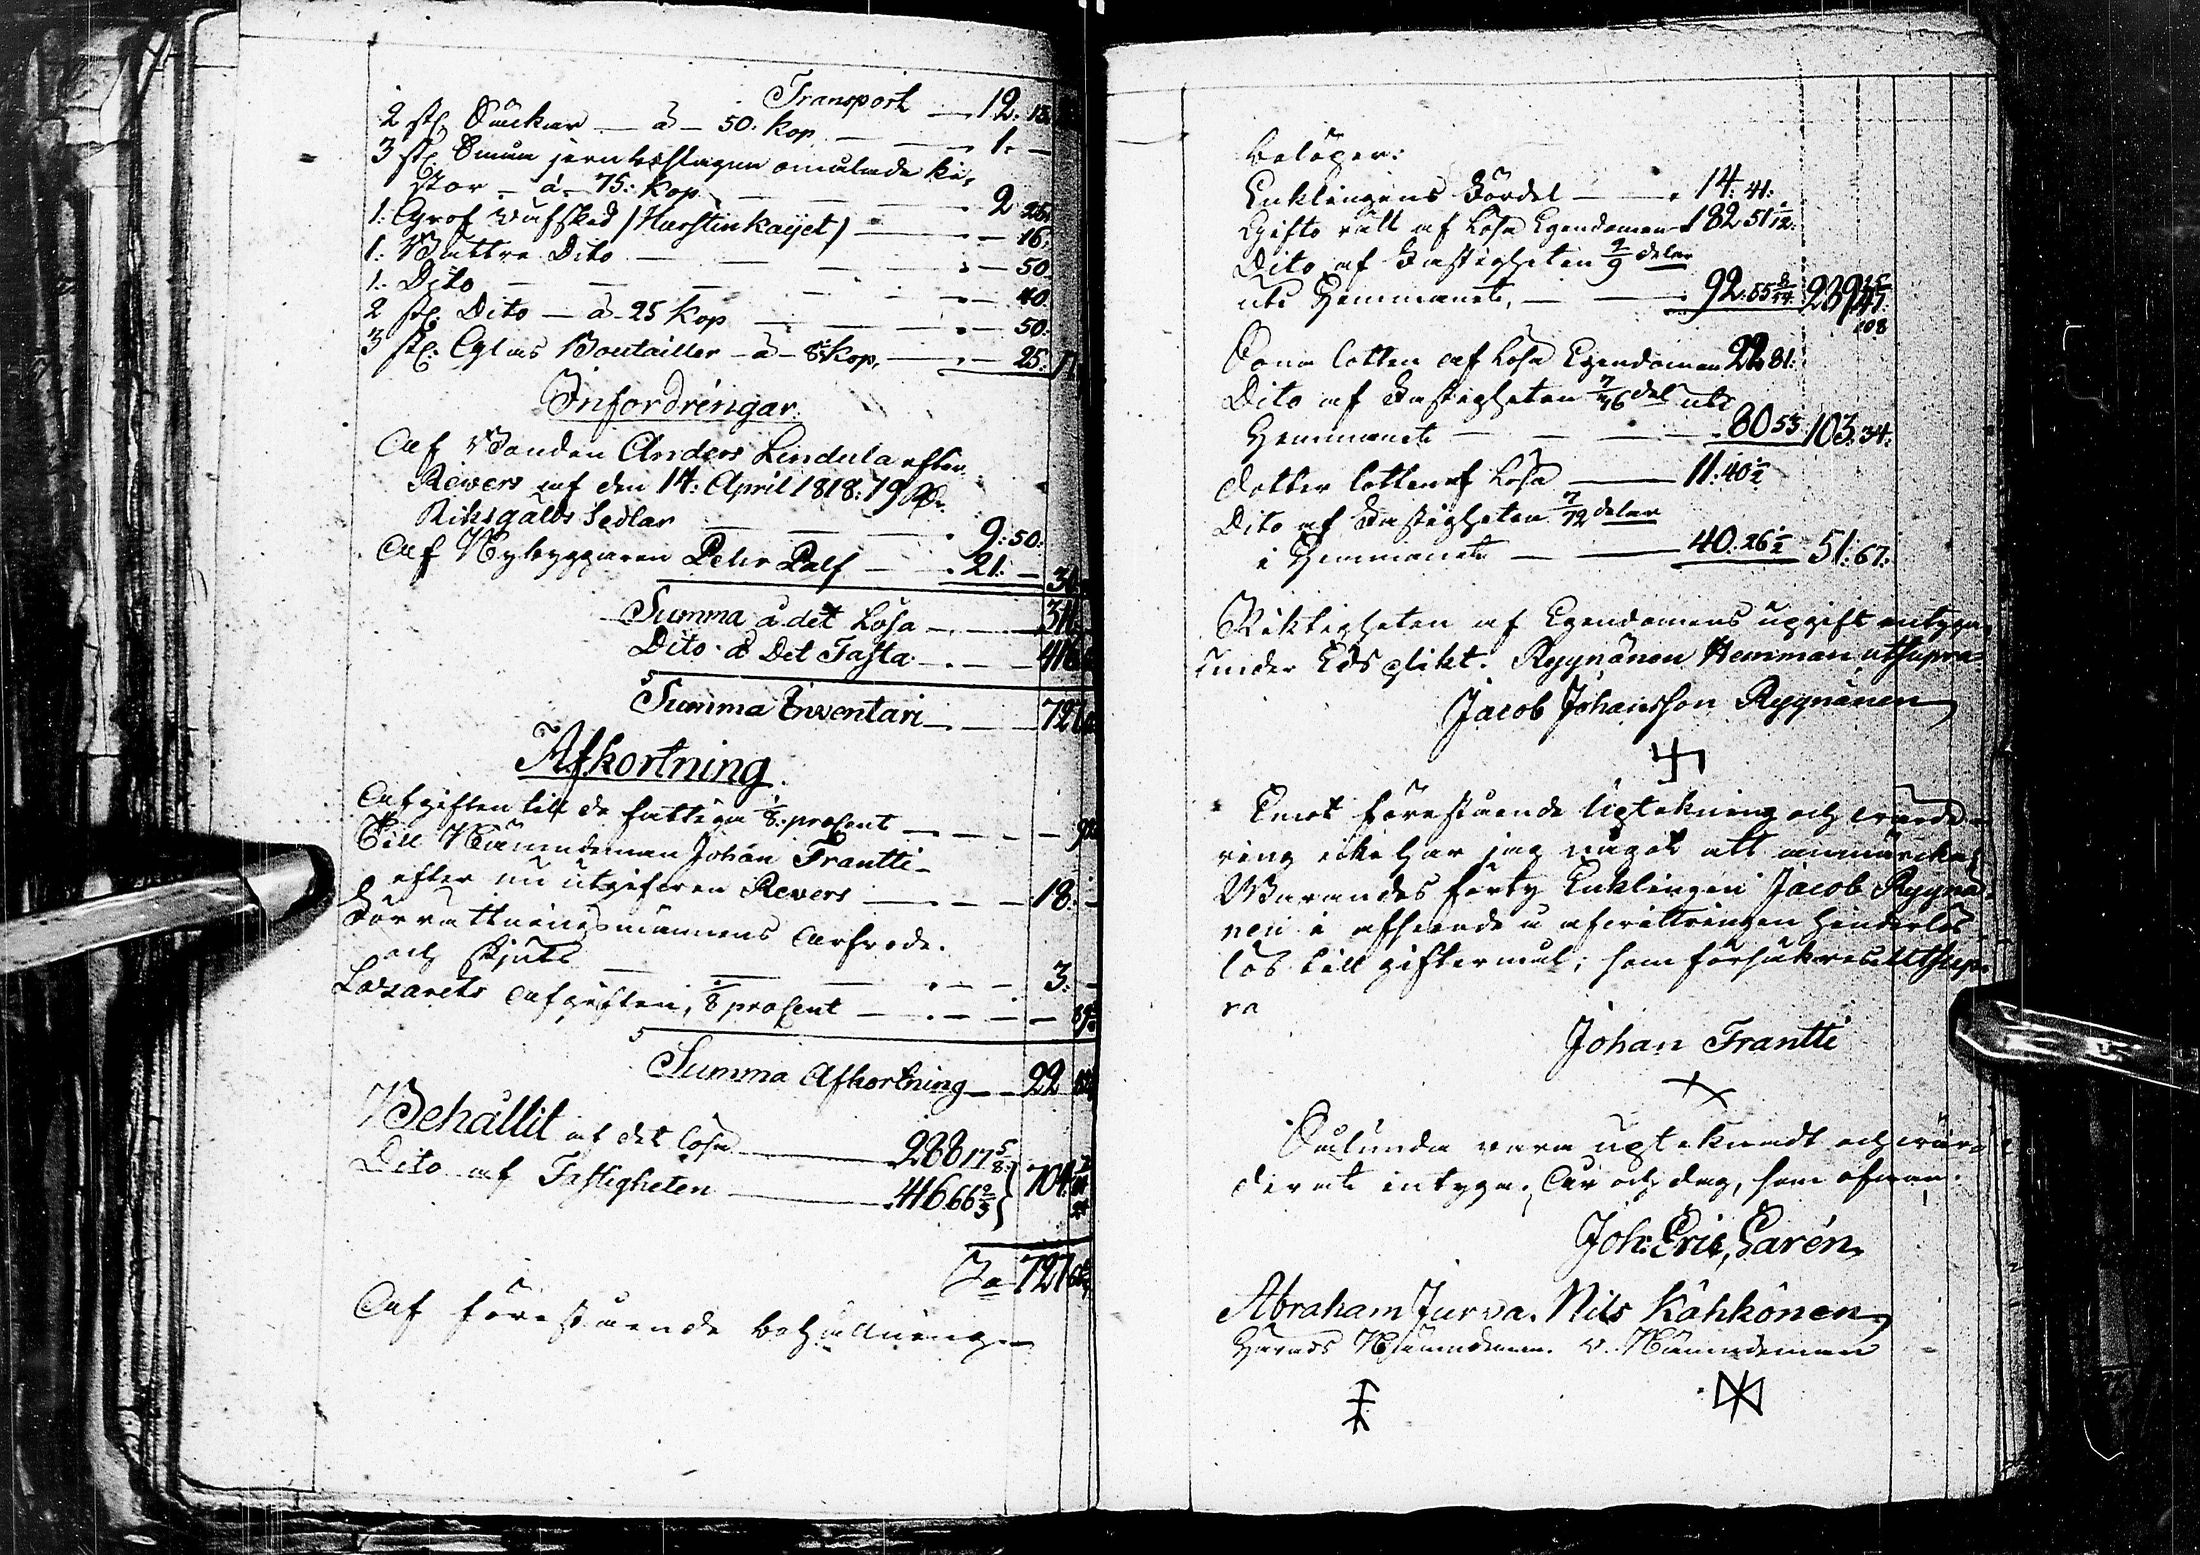 Transport — 12. 13.
2 st. Säckar — à — 50. Kop — 1. —
3 st. Smärre jernbeslagne omålade ki-
stor — à — 75: Kop — 2 25.
1. Grof (Hurstinkaijet) — 16.
1. Bättre Dito — 50.
1. Dito — 40.
2 st. Dito — à 25 Kop — 50.
3 st. Glas Boutailler — à — 8⅓ Kop. — 25.
Infordringar.
Af Bonden Anders Lindula efter
Revers af den 14. April 1818: 19 Rd.
Riksgälds Sedlar — 9: 50.
Af Nybyggaren Pehr Palf — 21. —
Summa å det Lösa — 311.
Dito å Det Fasta — 416
Summa Inventarii — 727
Afkortning.
Afgiften till de fattiga ⅛ procent —
Till Nämndeman Johan Frantti
efter nu utgifven Revers — 18. —
Förrättningsmännens arfvode
och skjuts — 3. —
Lazarets afgiften, ⅛ procent —
Summa Afkortning — 22
Behållit af det lösa — 288 17 5/8
Dito af Fastigheten — 416.66⅔ } 704
S:a 727
Af förestående behållning
belöper:
Enklingens Fördel — 14. 41.
Gifto rätt af Lösa Egendomen 182 51 1/12.
Dito af Fastigheten 2/9 delar
uti Hemmanet, — 92.
Sona lotten af Lösa Egendomen 22 81.
Dito af Fastigheten 7/36 del uti
Hemmanet — 80 53 103. 34.
Dotter lotten af Lösa — 11. 40½
Dito af Fastigheten 7/72 delar
i Hemmanet — 40. 26½ 51. 67.
Riktigheten af Egendomens upgift intygas
under Eds plikt. Ryynänen Hemman utsupra
Jacob Johansson Ryynänen
Emot förestående Uptekning och wärde-
ring icke har jag något att anmärcka
Warandes förty Enklingen Jacob Ryynä-
nen i afseende å afwittringen hinderlös
till giftermål; som försäkras Utsup-
ra
Johan Frantti
Sålunda vara uptekнadt och wär-
derat intyga. År och dag, som ofwan.
Joh: Eric, Sarén,
Abraham Jurva. Nils Kähkönen,
Härads Nämndeman. v. Nämndeman